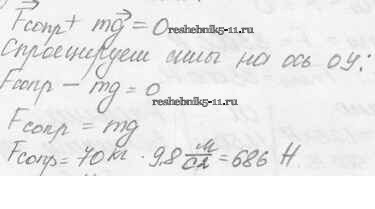 F⃗сопр + mg⃗ = 0
reshebnik5-11.ru
Спроецируем силы на ось оу:
Fсопр − mg = 0
reshebnik5-11.ru
Fсопр = mg
Fсопр = 70 кг · 9,8 м/с2 = 686 Н